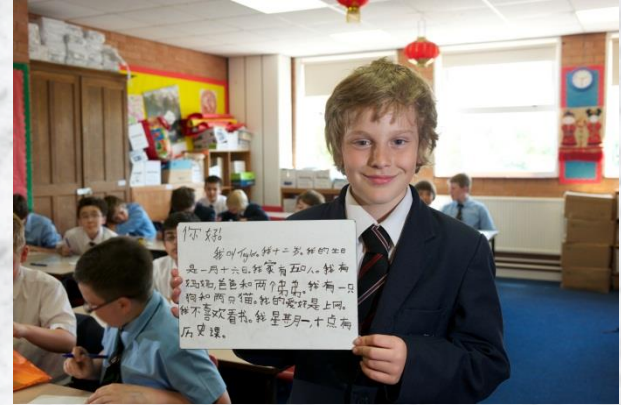 你好
我叫Taylor。我十二岁。我的生日
是一月十六日。我家有五口人。我有
妈妈,爸爸和两个哥哥。我有一只
狗和两只猫。我的爱好是上网。
我不喜欢看书。我星期一,十点有
历史课。